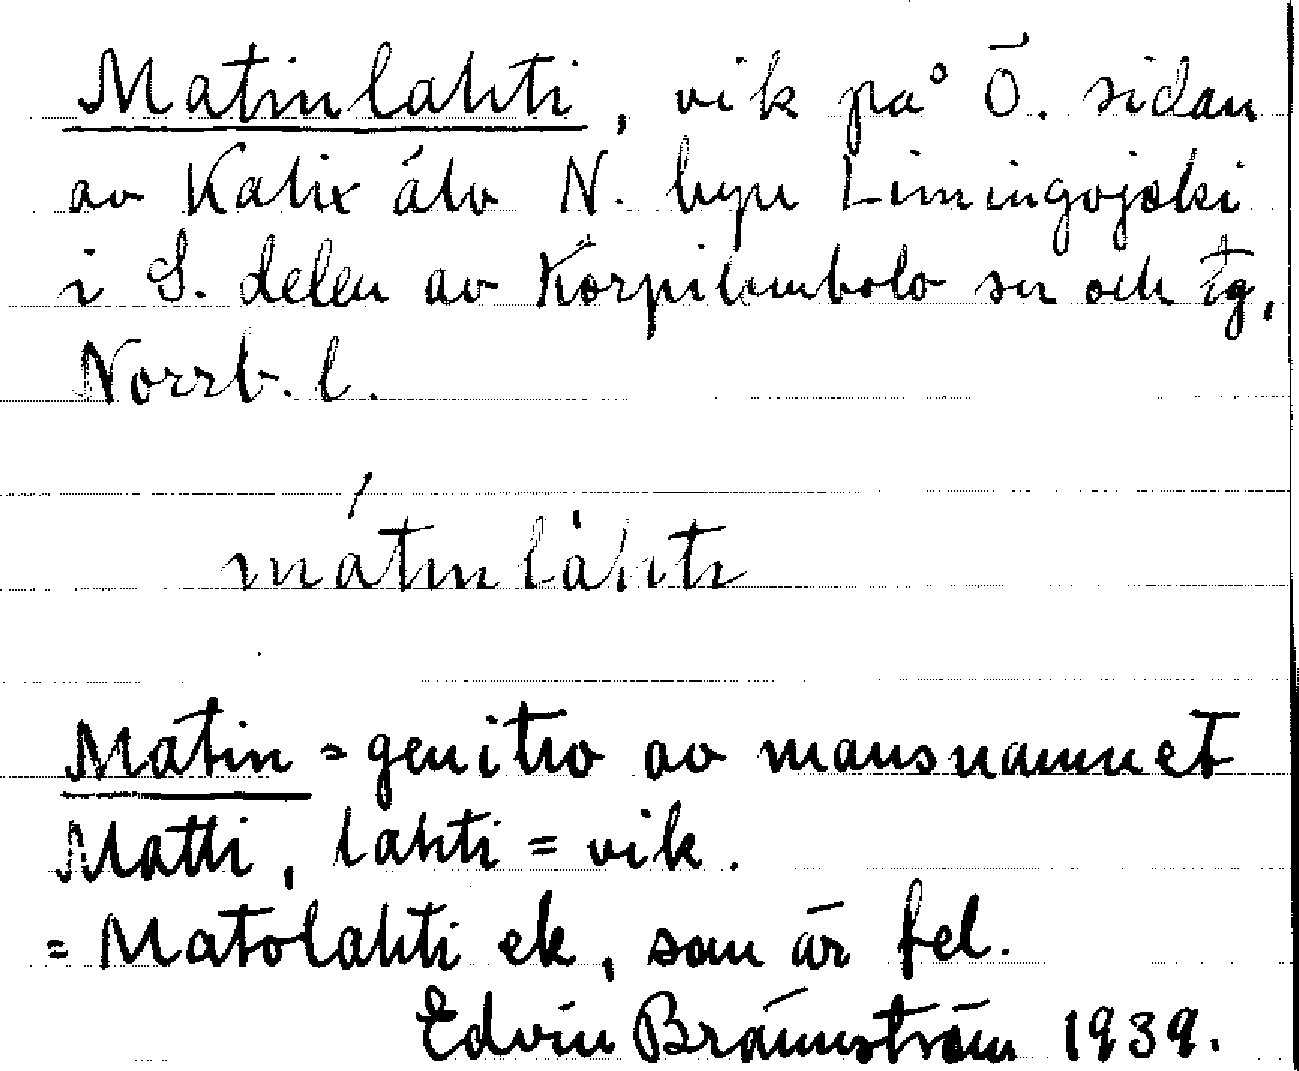 Matinlahti, vik på Ö. sidan
av Kalix älv N. byn Limingojoki
i S. delen av Korpilombolo sn och tg,
Norrb. l.
mátinlàhti
Matin = genitiv av mansnamnet
Matti, lahti = vik.
= Matolahti ek, som är fel.
Edvin Brännström 1939.